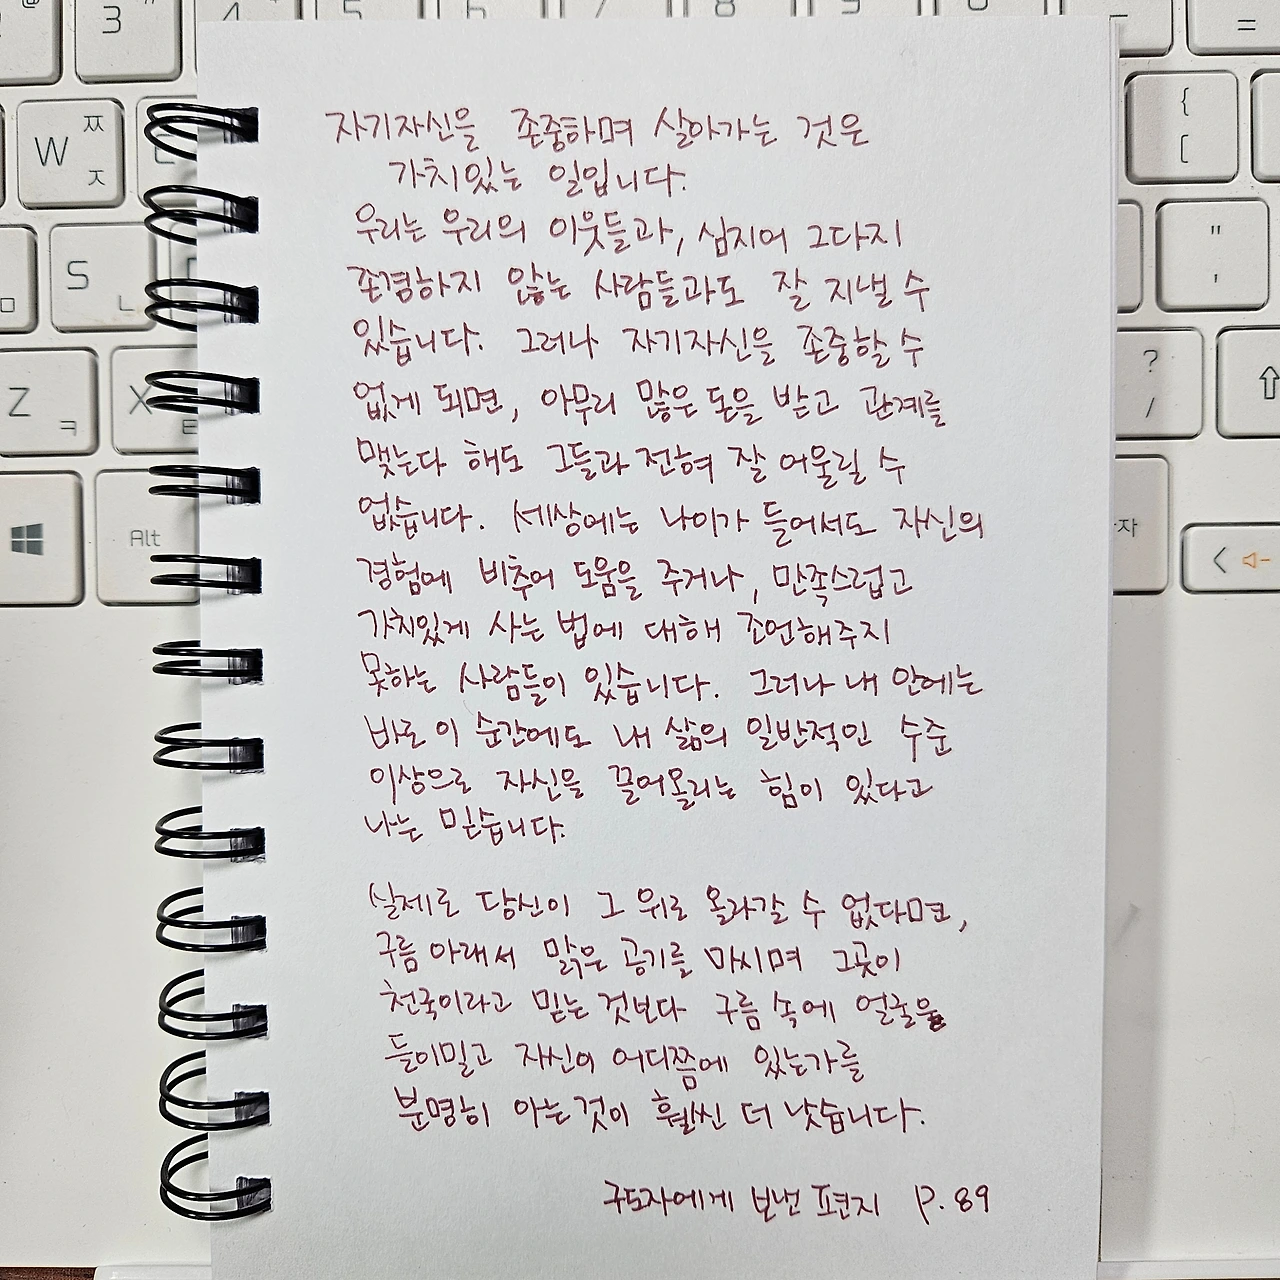 자기자신을 존중하며 살아가는 것은
가치있는 일입니다.
우리는 우리의 이웃들과, 심지어 그다지
존경하지 않는 사람들과도 잘 지낼 수
있습니다. 그러나 자기자신을 존중할 수
없게 되면, 아무리 많은 돈을 받고 관계를
맺는다 해도 그들과 전혀 잘 어울릴 수
없습니다. 세상에는 나이가 들어서도 자신의
경험에 비추어 도움을 주거나, 만족스럽고
가치있게 사는 법에 대해 조언해주지
못하는 사람들이 있습니다. 그러나 내 안에는
바로 이 순간에도 내 삶의 일반적인 수준
이상으로 자신을 끌어올리는 힘이 있다고
나는 믿습니다.
실제로 당신이 그 위로 올라갈 수 없다면,
구름 아래서 맑은 공기를 마시며 그곳이
천국이라고 믿는 것보다 구름 속에 얼굴을
들이밀고 자신이 어디쯤에 있는가를
분명히 아는것이 훨씬 더 낫습니다.
구도자에게 보낸 편지 P. 89
3
4
W
ㅉ
ㅈ
S
ㄴ
Z
ㅋ
X
ㅌ
Alt
{
[
"
'
?
/
=
자